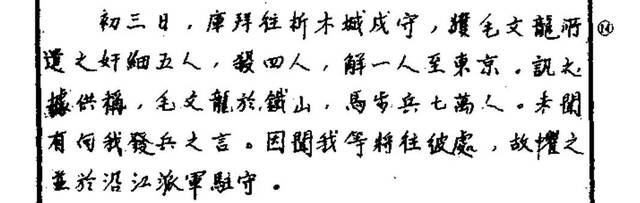 初三日，庫拜往析木城戍守，獲毛文龍所 ⑭
遣之奸細五人，殺四人，解一人至東京。訊之
據供稱，毛文龍於鐵山，馬步兵七萬人。未聞
有向我發兵之言。因聞我等將往彼處，故懼之
並於沿江派軍駐守。